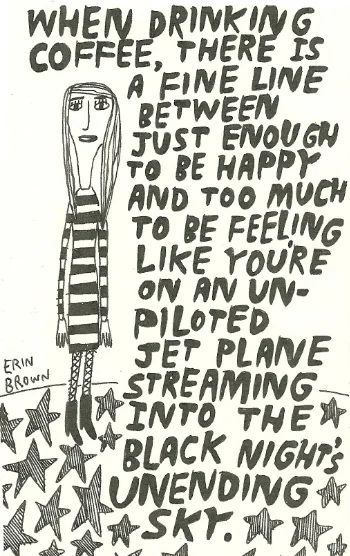 WHEN DRINKING
COFFEE, THERE IS
A FINE LINE
BETWEEN
JUST ENOUGH
TO BE HAPPY
AND TOO MUCH
TO BE FEELING
LIKE YOU'RE
ON AN UN-
PILOTED
JET PLANE
STREAMING
INTO THE
BLACK NIGHT'S
UNENDING
SKY.
ERIN
BROWN